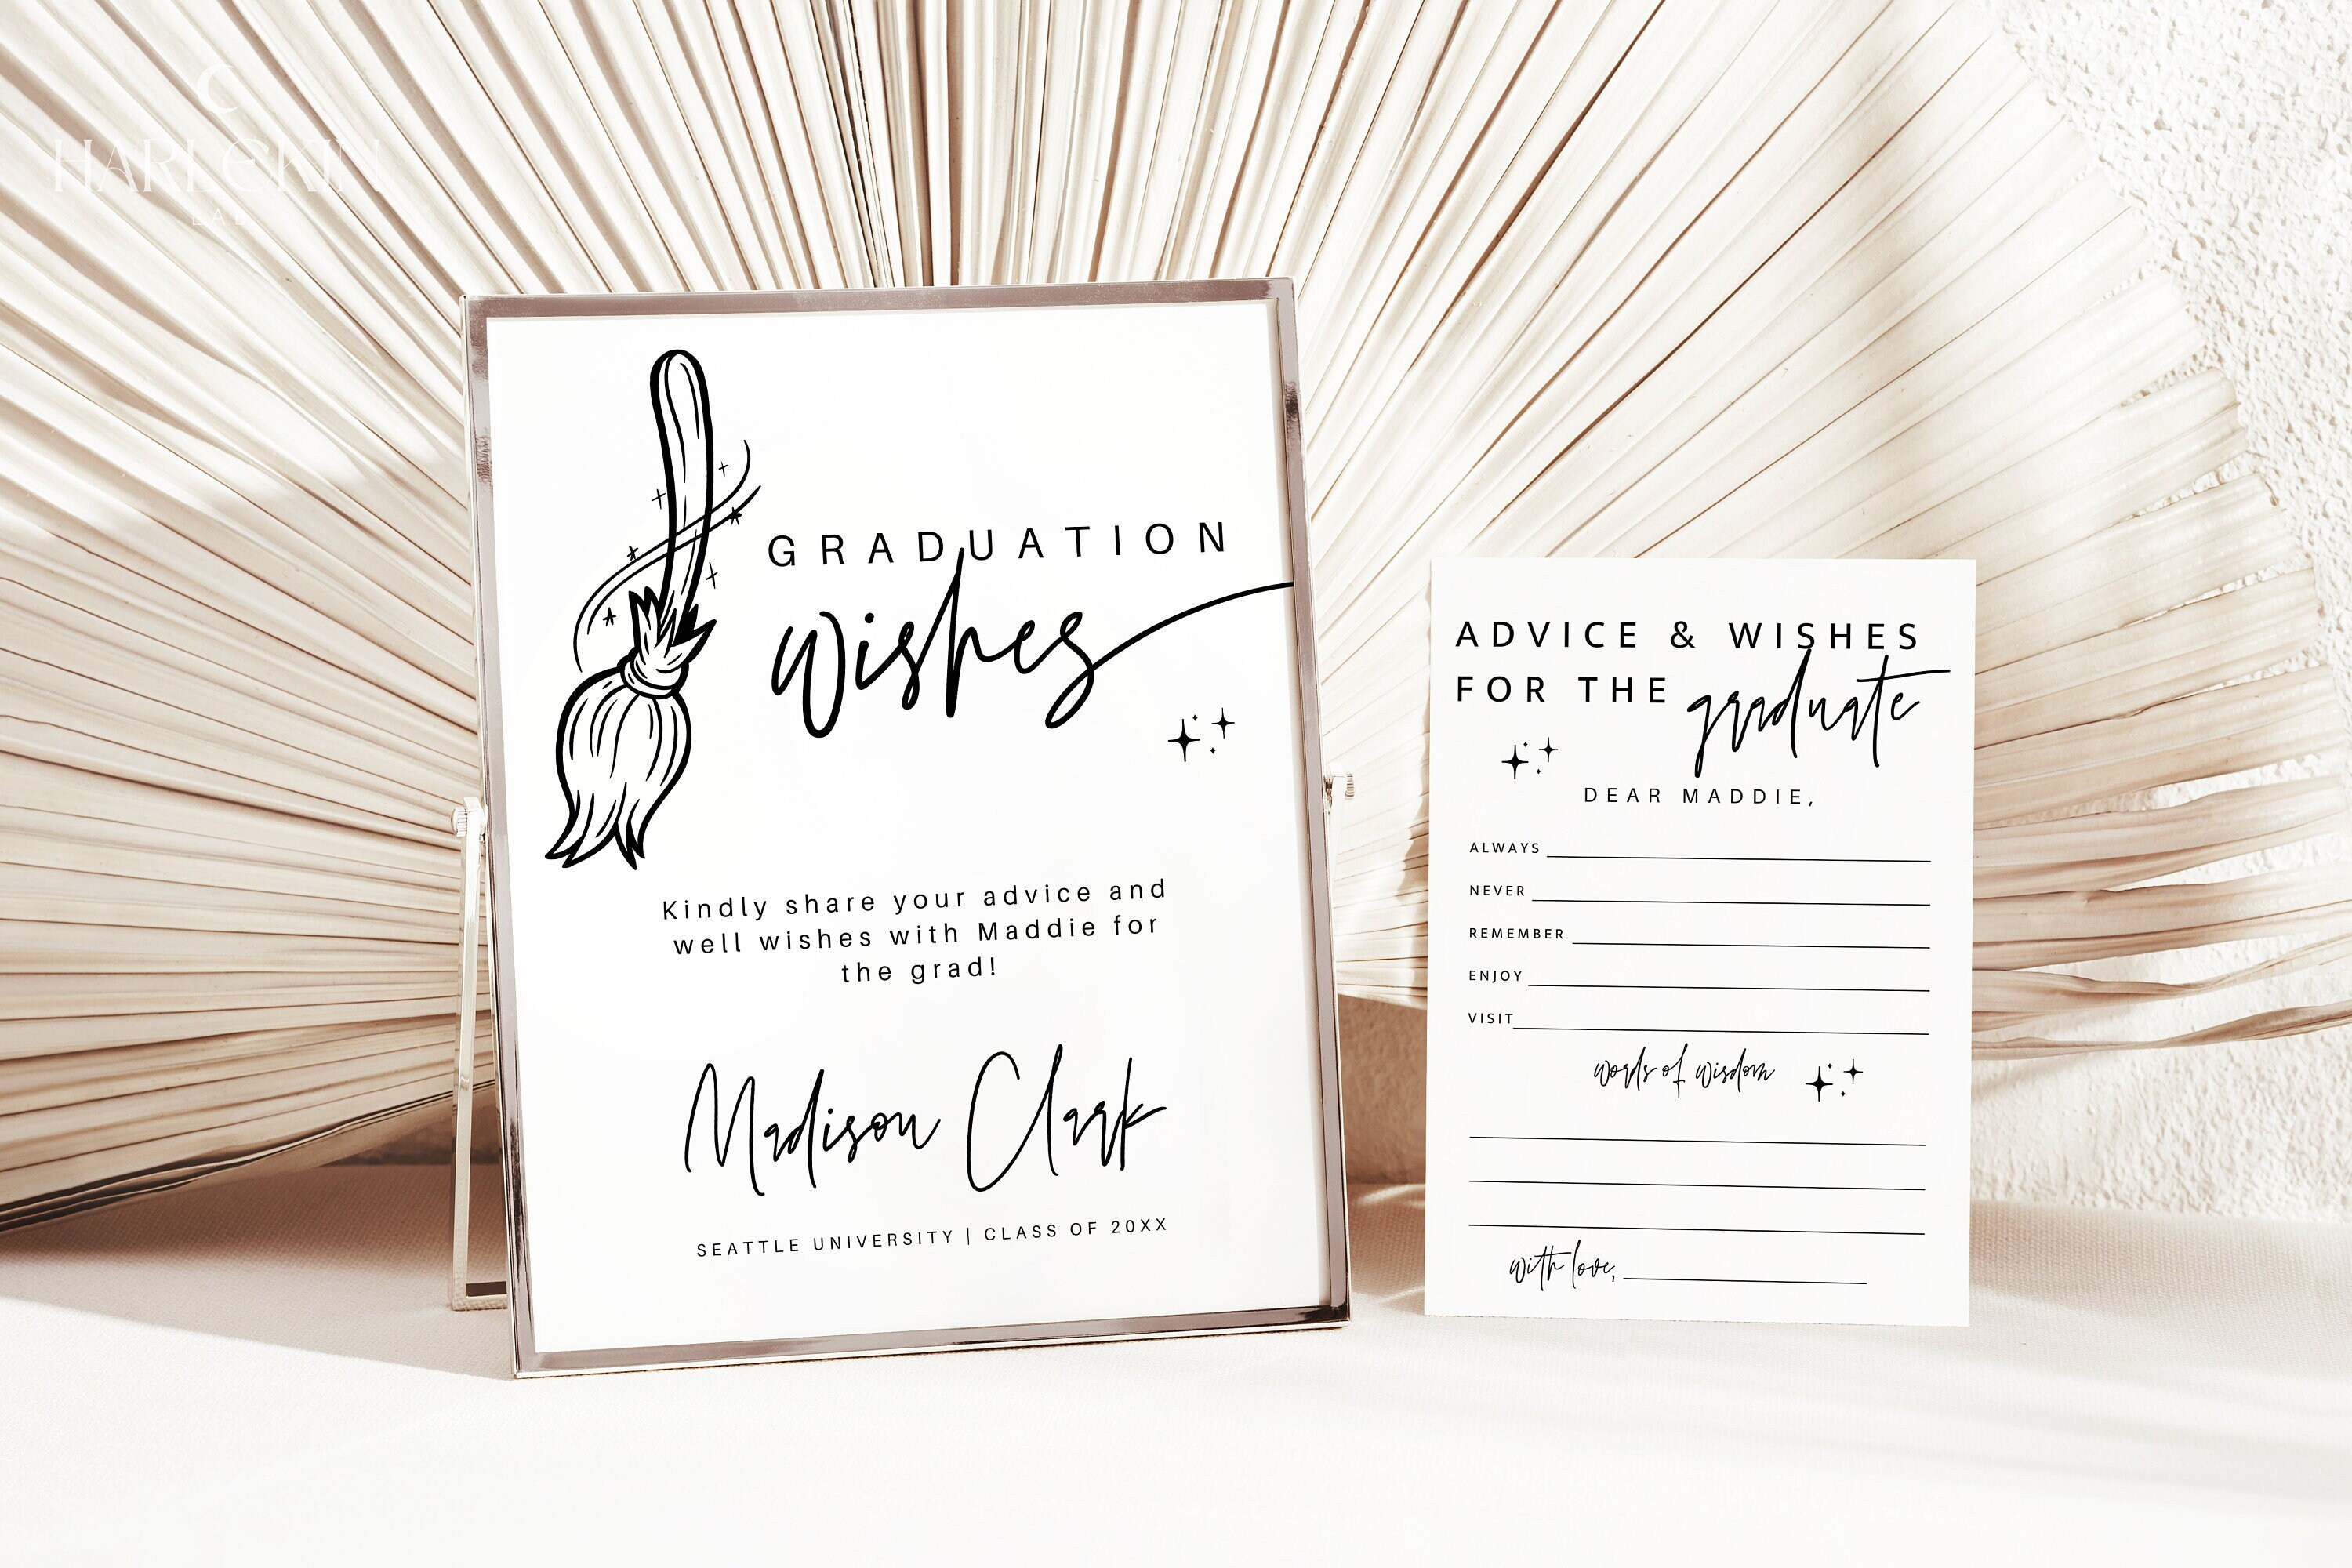 HARLEKIN
LAB
GRADUATION
wishes
Kindly share your advice and
well wishes with Maddie for
the grad!
Madison Clark
SEATTLE UNIVERSITY | CLASS OF 20XX
ADVICE & WISHES
FOR THE graduate
DEAR MADDIE,
ALWAYS
NEVER
REMEMBER
ENJOY
VISIT
words of wisdom
with love,